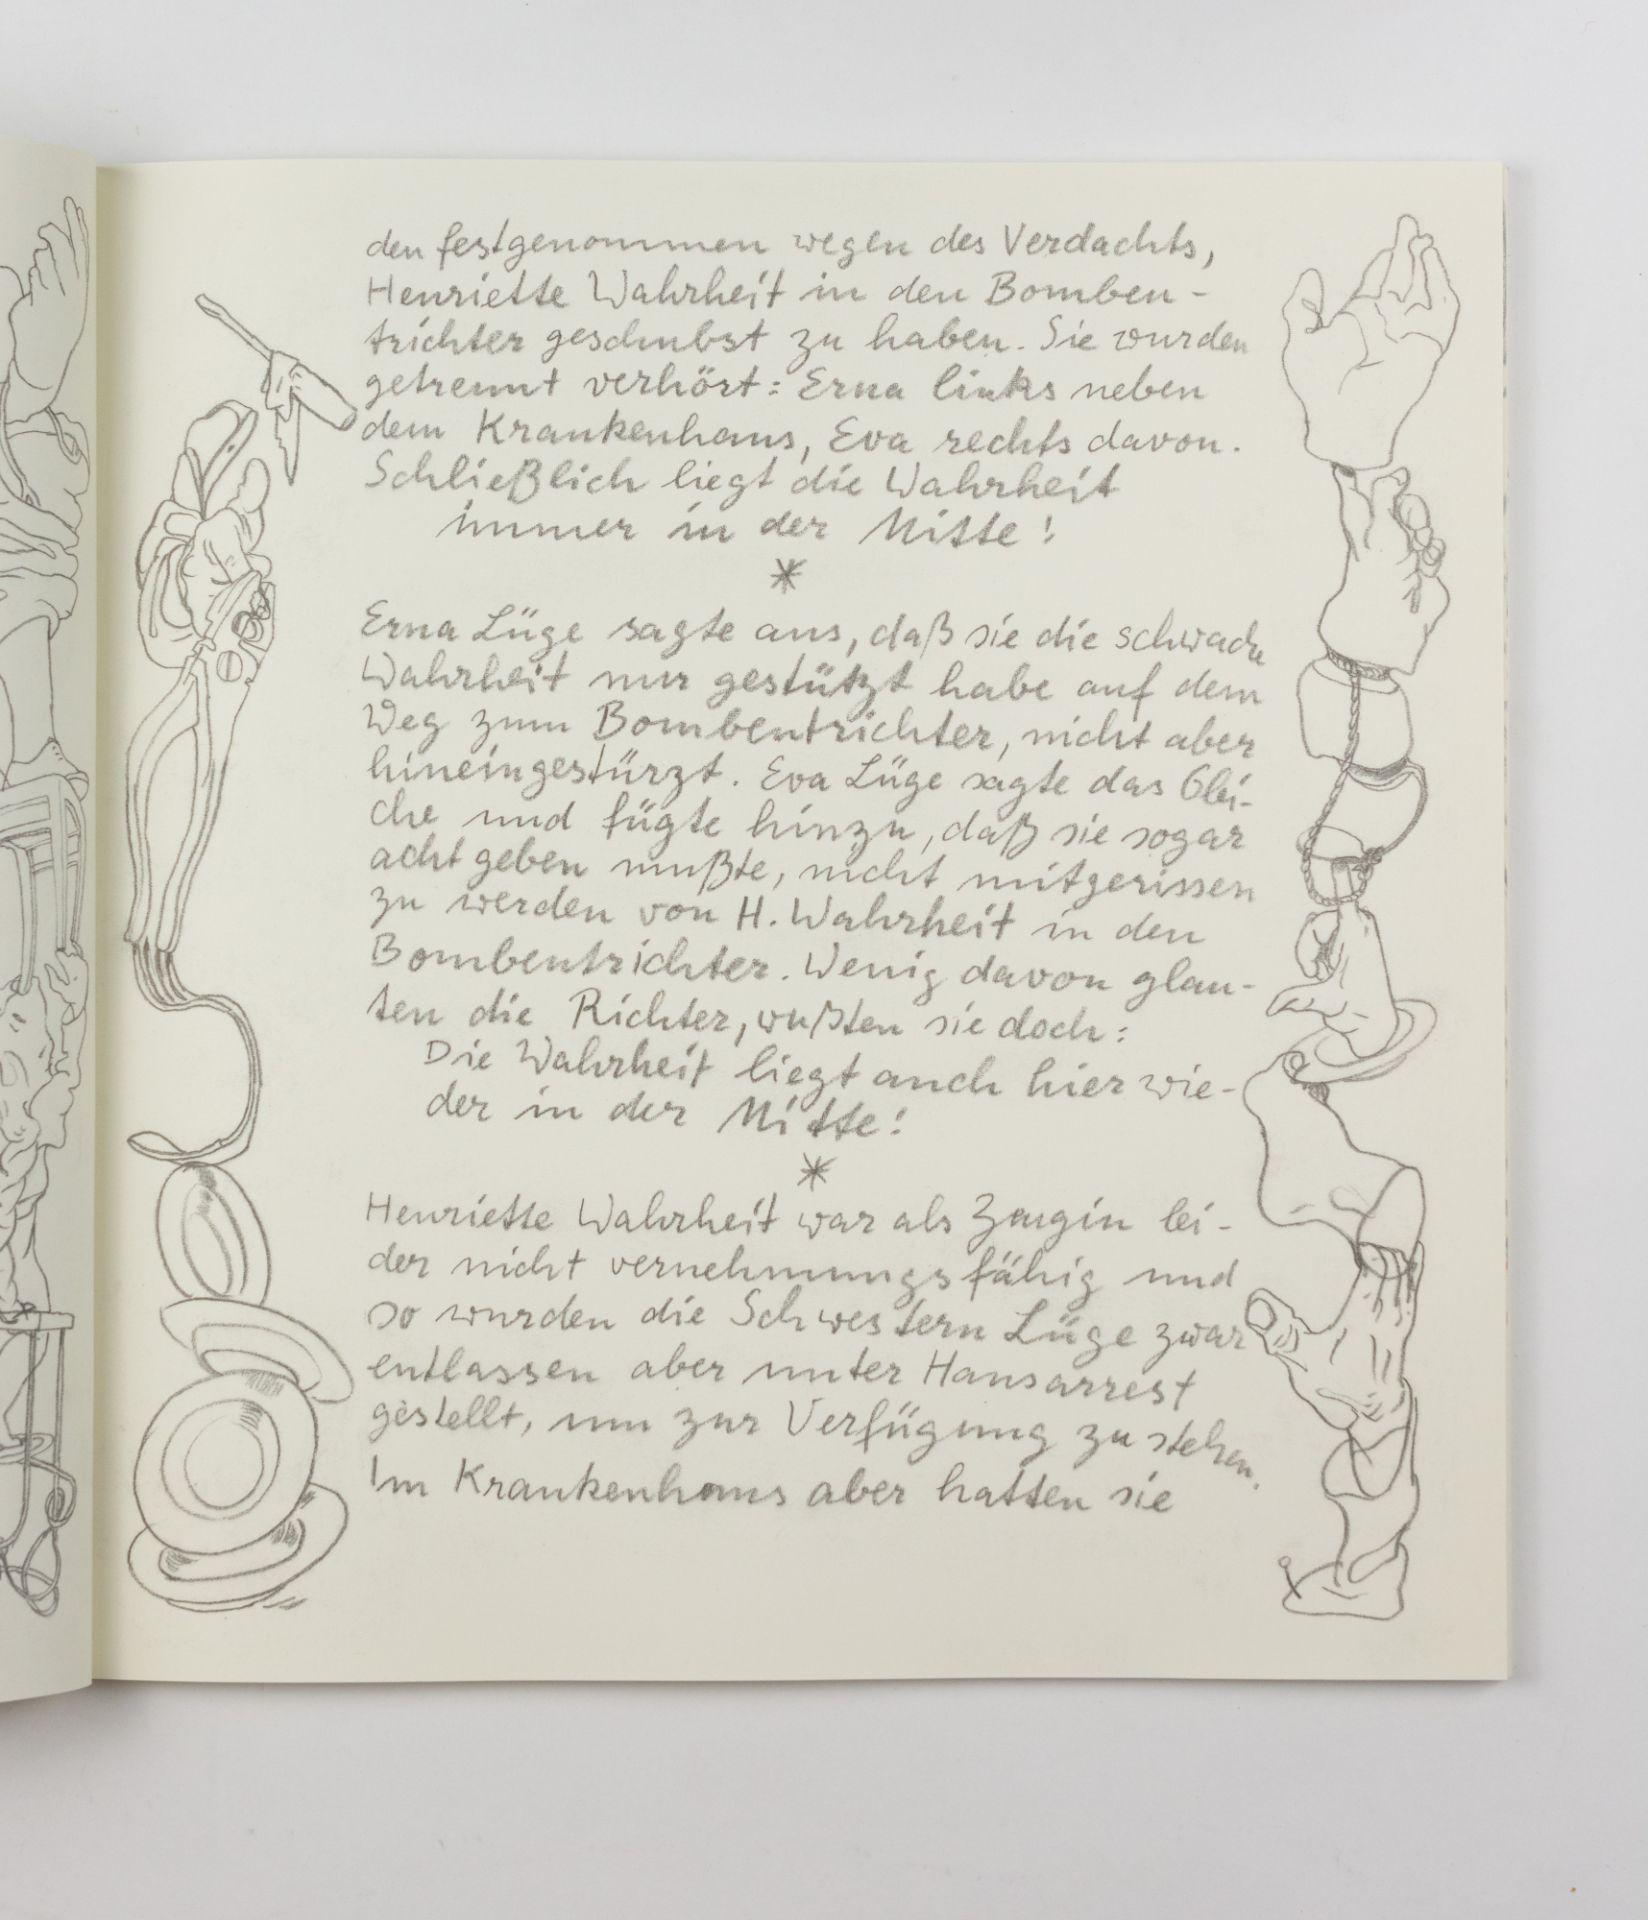 den festgenommen wegen des Verdachts,
Henriette Wahrheit in den Bomben-
trichter geschubst zu haben. Sie wurden
getrennt verhört: Erna links neben
dem Krankenhaus, Eva rechts davon.
Schließlich liegt die Wahrheit
immer in der Mitte!
*
Erna Lüge sagte aus, daß sie die schwache
Wahrheit nur gestützt habe auf dem
Weg zum Bombentrichter, nicht aber
hineingestürzt. Eva Lüge sagte das Glei-
che und fügte hinzu, daß sie sogar
acht geben mußte, nicht mitgerissen
zu werden von H. Wahrheit in den
Bombentrichter. Wenig davon glau-
ten die Richter, wußten sie doch:
Die Wahrheit liegt auch hier wie-
der in der Mitte!
*
Henriette Wahrheit war als Zeugin lei-
der nicht vernehmungsfähig und
so wurden die Schwestern Lüge zwar
entlassen aber unter Hausarrest
gestellt, um zur Verfügung zu stehen.
Im Krankenhaus aber hatten sie